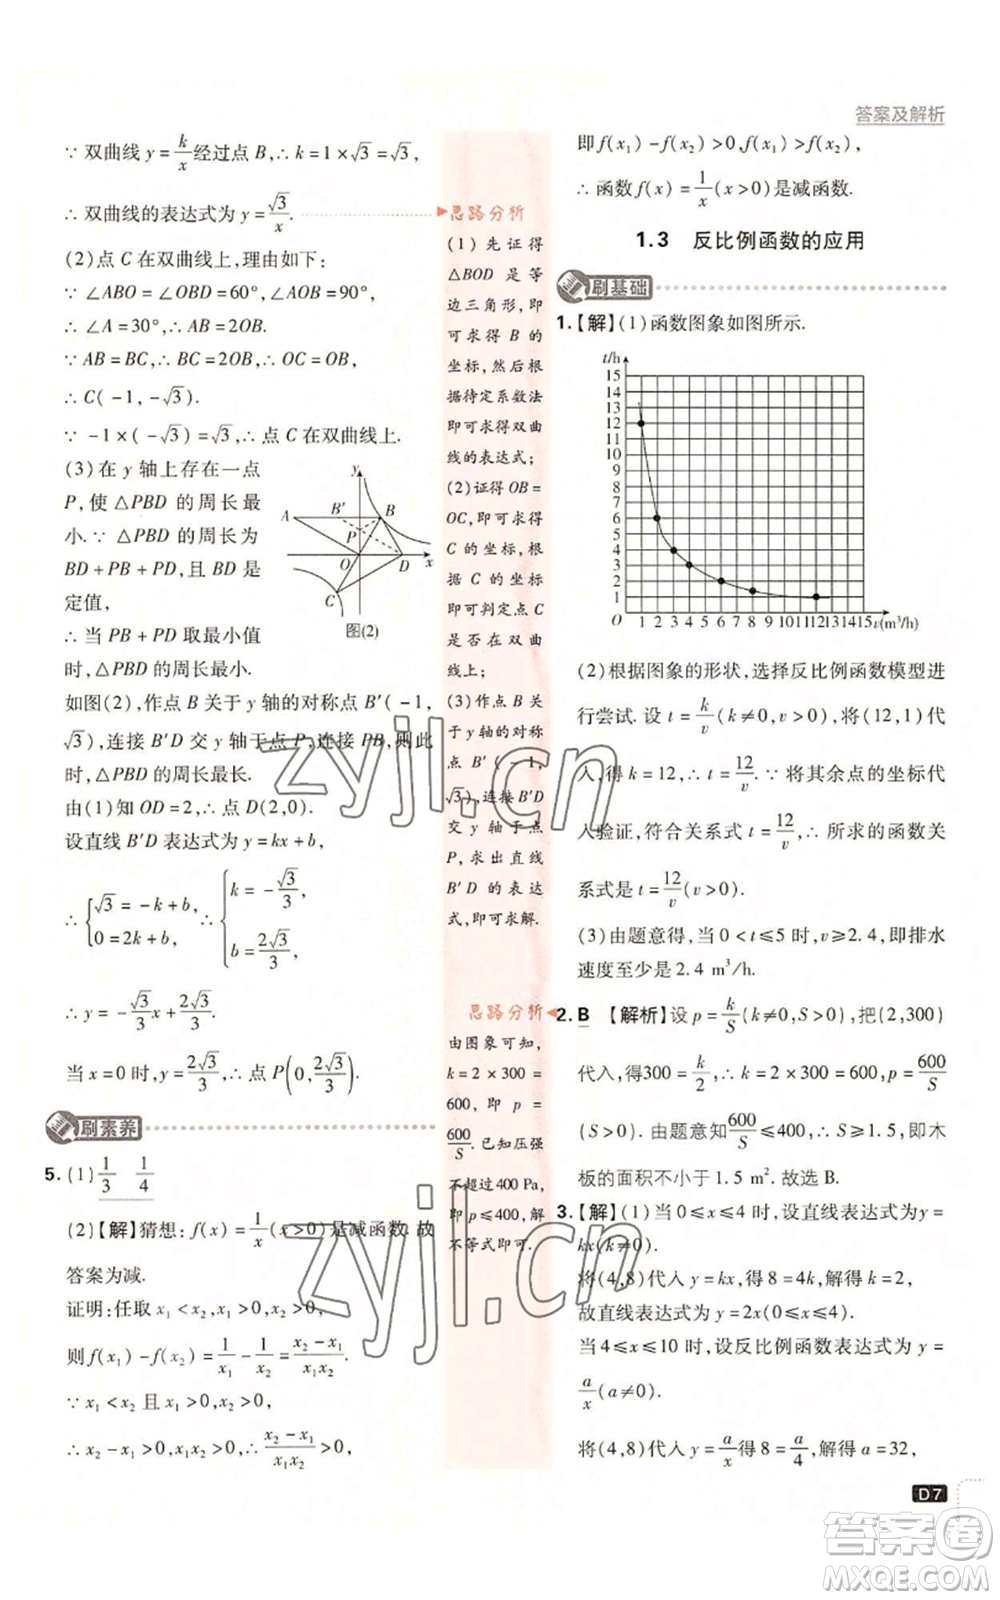 答案及解析
∵ 双曲线 y = k/x 经过点 B,∴ k = 1 × √3 = √3,
∴ 双曲线的表达式为 y = √3/x.
(2)点 C 在双曲线上,理由如下:
∵ ∠ABO = ∠OBD = 60°,∠AOB = 90°,
∴ ∠A = 30°,∴ AB = 2OB.
∵ AB = BC,∴ BC = 2OB,∴ OC = OB,
∴ C(-1, -√3).
∵ -1 × (-√3) = √3,∴ 点 C 在双曲线上.
(3)在 y 轴上存在一点
P,使 △PBD 的周长最
小.∵ △PBD 的周长为
BD + PB + PD,且 BD 是
定值,
∴ 当 PB + PD 取最小值
时,△PBD 的周长最小.
y
A
B′
B
P
O
D
x
C
图(2)
如图(2),作点 B 关于 y 轴的对称点 B′(-1,
√3),连接 B′D 交 y 轴于点 P,连接 PB,则此
时,△PBD 的周长最长.
由(1)知 OD = 2,∴ 点 D(2,0).
设直线 B′D 表达式为 y = kx + b,
∴ {√3 = -k + b, 0 = 2k + b, ∴ {k = -√3/3, b = 2√3/3,
∴ y = -√3/3 x + 2√3/3.
当 x = 0 时,y = 2√3/3,∴ 点 P(0, 2√3/3).
刷素养
5. (1) 1/3 1/4
(2)【解】猜想:f(x) = 1/x (x > 0)是减函数.故
答案为减.
证明:任取 x₁ < x₂, x₁ > 0, x₂ > 0,
则 f(x₁) - f(x₂) = 1/x₁ - 1/x₂ = (x₂ - x₁)/(x₁x₂).
∵ x₁ < x₂ 且 x₁ > 0, x₂ > 0,
∴ x₂ - x₁ > 0, x₁x₂ > 0, ∴ (x₂ - x₁)/(x₁x₂) > 0,
思路分析
(1)先证得
△BOD 是等
边三角形,即
可求得 B 的
坐标,然后根
据待定系数法
即可求得双曲
线的表达式;
(2)证得 OB =
OC,即可求得
C 的坐标,根
据 C 的坐标
即可判定点 C
是否在双曲
线上;
(3)作点 B 关
于 y 轴的对称
点 B′(-1,
√3),连接 B′D
交 y 轴于点
P,求出直线
B′D 的表达
式,即可求解.
思路分析
由图象可知,
k = 2 × 300 =
600,即 p =
600/S.已知压强
不超过 400 Pa,
即 p ≤ 400,解
不等式即可.
即 f(x₁) - f(x₂) > 0, f(x₁) > f(x₂),
∴ 函数 f(x) = 1/x (x > 0)是减函数.
1.3 反比例函数的应用
刷基础
1.【解】(1)函数图象如图所示.
t/h
15
14
13
12
11
10
9
8
7
6
5
4
3
2
1
O 1 2 3 4 5 6 7 8 9 10 11 12 13 14 15 v(m³/h)
(2)根据图象的形状,选择反比例函数模型进
行尝试.设 t = k/v (k ≠ 0, v > 0),将(12,1)代
入,得 k = 12,∴ t = 12/v.∵ 将其余点的坐标代
入验证,符合关系式 t = 12/v,∴ 所求的函数关
系式是 t = 12/v (v > 0).
(3)由题意得,当 0 < t ≤ 5 时,v ≥ 2.4,即排水
速度至少是 2.4 m³/h.
2. B 【解析】设 p = k/S (k ≠ 0, S > 0),把(2,300)
代入,得 300 = k/2,∴ k = 2 × 300 = 600,∴ p = 600/S
(S > 0).由题意知 600/S ≤ 400,∴ S ≥ 1.5,即木
板的面积不小于 1.5 m².故选 B.
3.【解】(1)当 0 ≤ x ≤ 4 时,设直线表达式为 y =
kx(k ≠ 0).
将(4,8)代入 y = kx,得 8 = 4k,解得 k = 2,
故直线表达式为 y = 2x(0 ≤ x ≤ 4).
当 4 ≤ x ≤ 10 时,设反比例函数表达式为 y =
a/x (a ≠ 0).
将(4,8)代入 y = a/x 得 8 = a/4,解得 a = 32,
D7
zyjl.cn
zyjl.cn
答案圈
MXQE.COM